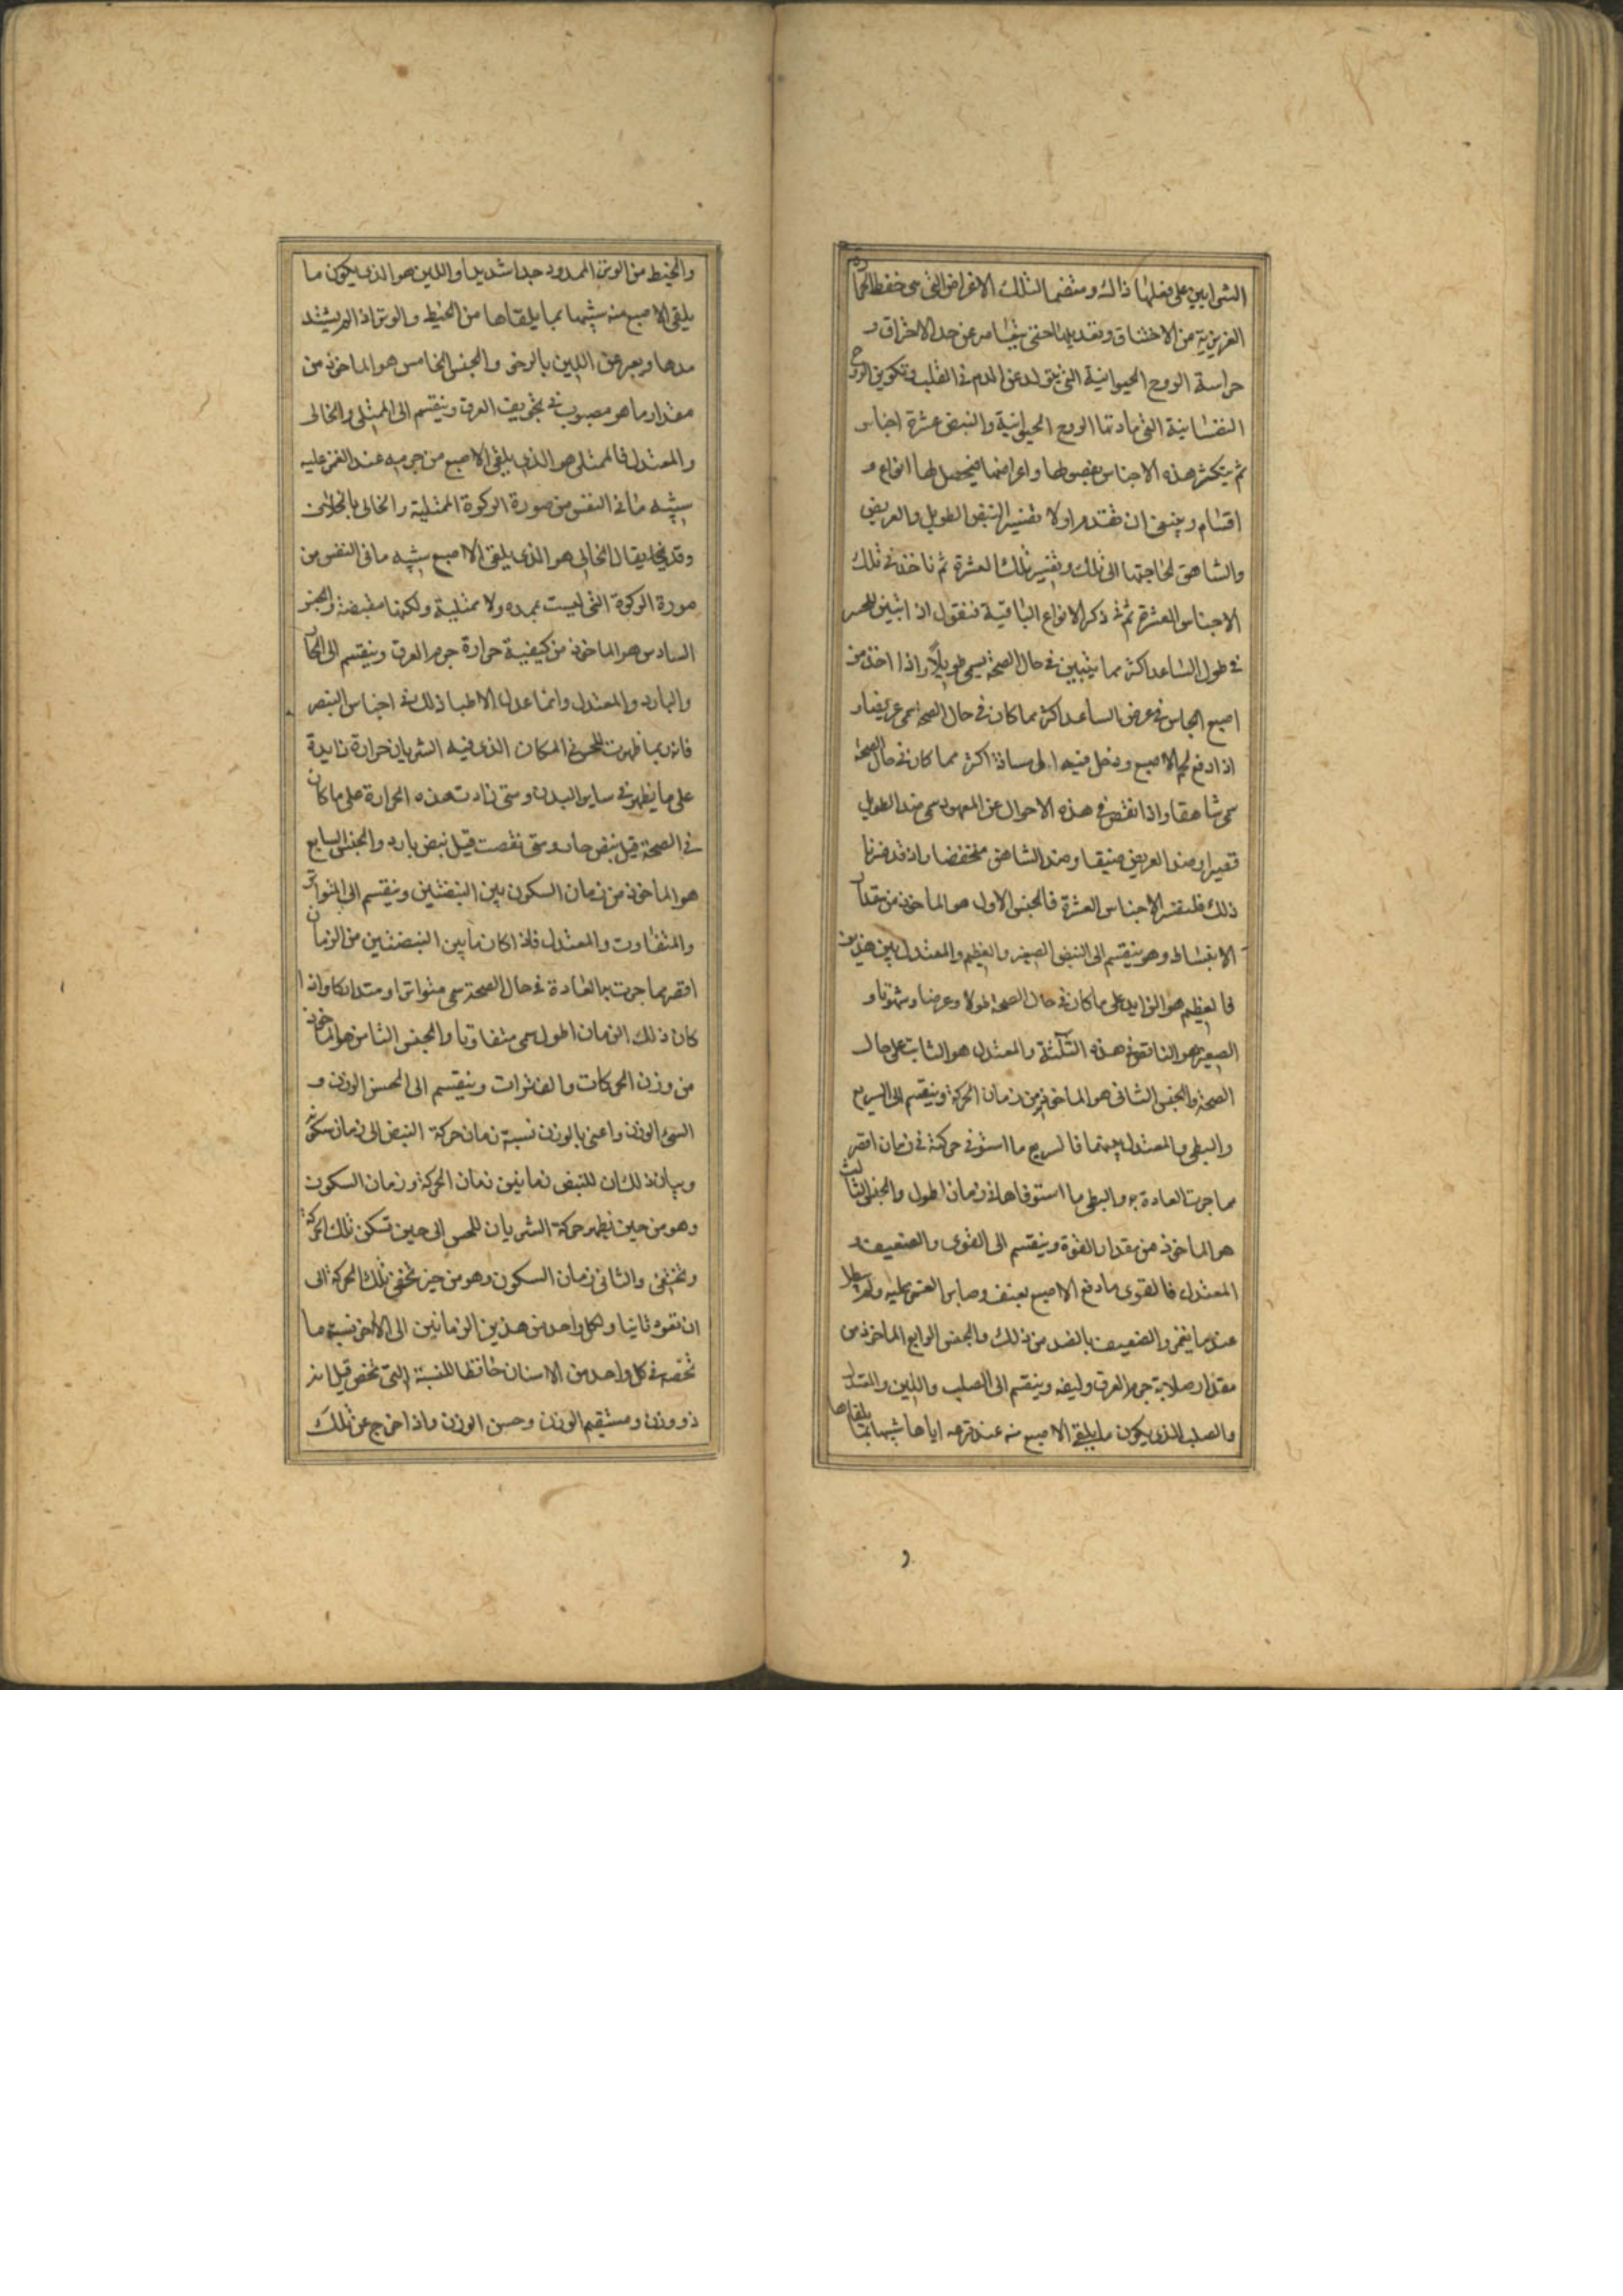 الشرايين على فعلها ذالك ومتضما لتلك الاغراض التي هي حفظ الحرارة
الغريزية من الاختناق وتعديلها حتى يتجا مر عن حد الاحتراق و
حراسة الروح الحيوانية التي يتولد عن الدم في القلب وتكوين الروح
النفسانية التي مادتها الروح الحيوانية والنبض عشرة اجناس
ثم يتكثر هذه الاجناس بفصولها واعراضها فيحصل لها انواع و
اقسام وينبغي ان نقدم اولا تفسير النبض الطويل والعريض
والشاهق لحاجتنا الى ذلك وتفسير تلك العشرة ثم ناخذ في تلك
الاجناس العشرة ثم في ذكر الانواع الباقية فنقول اذا تبين للحس
في طول الساعد اكثر مما يتبين في حال الصحة يسمى طويلاً واذا اخذ من
اصبع الجاس في عرض الساعد اكثر مما كان في حال الصحة سمى عريضا و
اذا دفع لحم الاصبع ودخل فيه الى مسافة اكثر مما كان في حال الصحة
سمى شاهقا واذا نقص في هذه الاحوال عن المعهود سمى ضد الطويل
قصيرا وضد العريض ضيقا وضد الشاهق منخفضا واذ قد فسرنا
ذلك فلنفسر الاجناس العشرة فالجنس الاول هو الماخوذ من مقدار
الانبساط وهو ينقسم الى النبض الصغير والعظيم والمعتدل بين هذين
فالعظيم هو الزايد على ما كان في حال الصحة طولا وعرضا وشهوقا و
الصغير هو الناقص في هذه الثلثة والمعتدل هو الثابت على حال
الصحة والجنس الثاني هو الماخوذ من زمان الحركة وينقسم الى السريع
والبطى والمعتدل بينهما فالسريع ما استوفى حركة في زمان اقصر
مما جرت العادة به والبطى ما استوفاها في زمان اطول والجنس الثالث
هو الماخوذ من مقدار القوة وينقسم الى القوى والضعيف و
المعتدل فالقوى ما دفع الاصبع بعنف وصابر الغمز عليه ولم يبطل
عند ما يغمز والضعيف بالضد من ذلك والجنس الرابع الماخوذ من
مقدار صلابة جرم العرق وليفه وينقسم الى الصلب واللين والمعتدل
والصلب الذي يكون ما يلقى الاصبع منه عند قرعه اياها شبيها بما يلقاها
والخيط من الوتر الممدود جدا شديدا واللين هو الذي يكون ما
يلقى الاصبع منه شبيها بما يلقاها من الخيط والوتر اذا لم يشتد
مدها ويعبر عن اللين بالرخى والجنس الخامس هو الماخوذ من
مقدار ما هو مصبوب في تجويف العرق وينقسم الى الممتلى والخالى
والمعتدل فالممتلى هو الذي يلقى الاصبع من جرمه عند الغمز عليه
شبيه ما في النفس من صورة الركوة الممتلية والخالى بالخلاف
وقد يقال الخالى هو الذي يلقى الاصبع شبيه ما في النفس من
صورة الركوة التي ليست بمده ولا ممتلية ولكنها منقبضة والجنس
السادس هو الماخوذ من كيفية حرارة جرم العرق وينقسم الى الحار
والبارد والمعتدل وانما عدل الاطبا ذلك في اجناس النبض
فانه ربما ظهرت للحس في المكان الذي فيه الشريان حرارة زايدة
على ما يظهر في ساير البدن ومتى زادت هذه الحرارة على ما كان
في الصحة قيل نبض حار ومتى نقصت قيل نبض بارد والجنس السابع
هو الماخوذ من زمان السكون بين النبضتين وينقسم الى المتواتر
والمتفاوت والمعتدل فاذا كان ما بين النبضتين من الزمان
اقصر مما جرت به العادة في حال الصحة سمى متواترا ومتداركا واذا
كان ذلك الزمان اطول سمى متفاوتا والجنس الثامن هو الماخوذ
من وزن الحركات والفترات وينقسم الى الحسن الوزن و
السئ الوزن واعنى بالوزن نسبة زمان حركة النبض الى زمان سكونه
وبيان ذلك ان للنبض زمانين زمان الحركة وزمان السكون
وهو من حين يظهر حركة الشريان للحس الى حين تسكن تلك الحركة
وتختفى والثاني زمان السكون وهو من حين تخفى تلك الحركة الى
ان تعود ثانيا ولكل واحد من هذين الزمانين الى الاخر نسبة ما
تخصه في كل واحد من الاسنان حافظا للنسبة التي تخص قيل انه
ذو وزن ومستقيم الوزن وحسن الوزن واذا خرج عن تلك
و